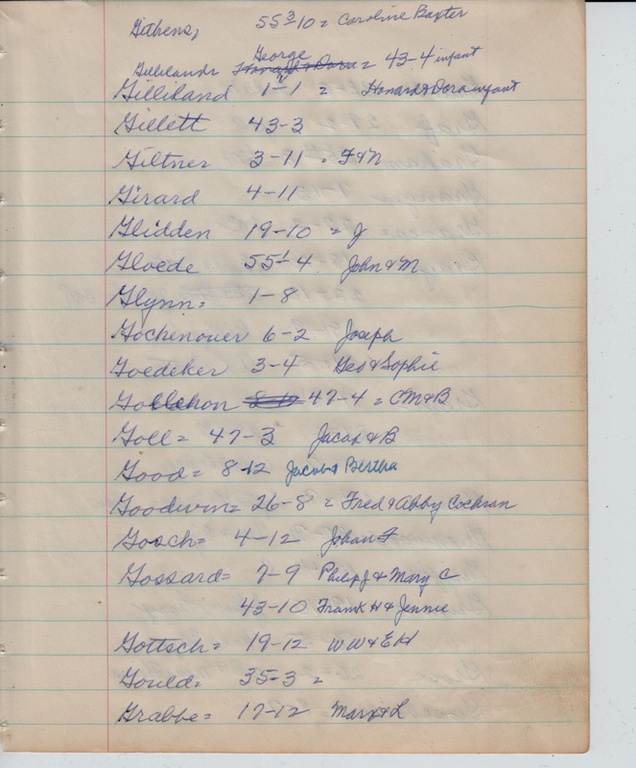 Githens, 55 3/10 = Caroline Baxter
George
Gillilands = 43-4 infant
Gilliland 1-1 = Honard & Dora infant
Gillett 43-3
Giltner 3-11 = F & N
Girard 4-11
Glidden 19-10 = J
Gloede 55 1/4 John & M
Glynn = 1-8
Gochenouer 6-2 Joseph
Goedeker 3-4 Geo & Sophie
47-4 = CM & B
Goll = 47-3 Jacob & B
Good = 8-12 Jacob & Bertha
Goodwin = 26-8 = Fred & Abby Cochran
Gosch = 4-12 Johan F
Gossard = 7-9 Philip J & Mary C
43-10 Frank H & Jennie
Gottsch = 19-12 WW & EH
Gould = 35-3 =
Grabbe = 17-12 Marx & L